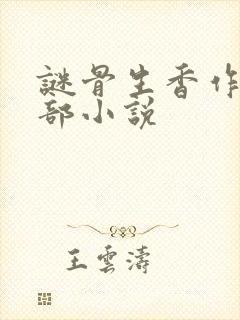 謎骨生香作
部小說
王雲濤